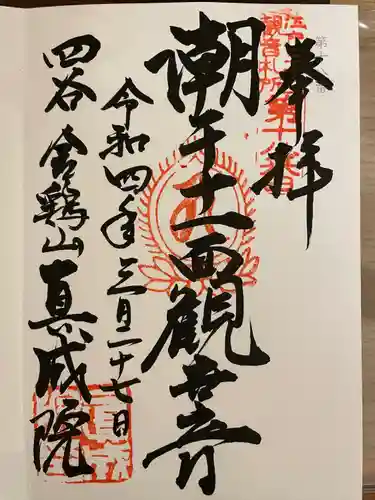 奉拝
第十八番
観音札所
第十八番
潮干十一面觀世音
令和四年三月二十七日
四谷 金鶏山 真成院